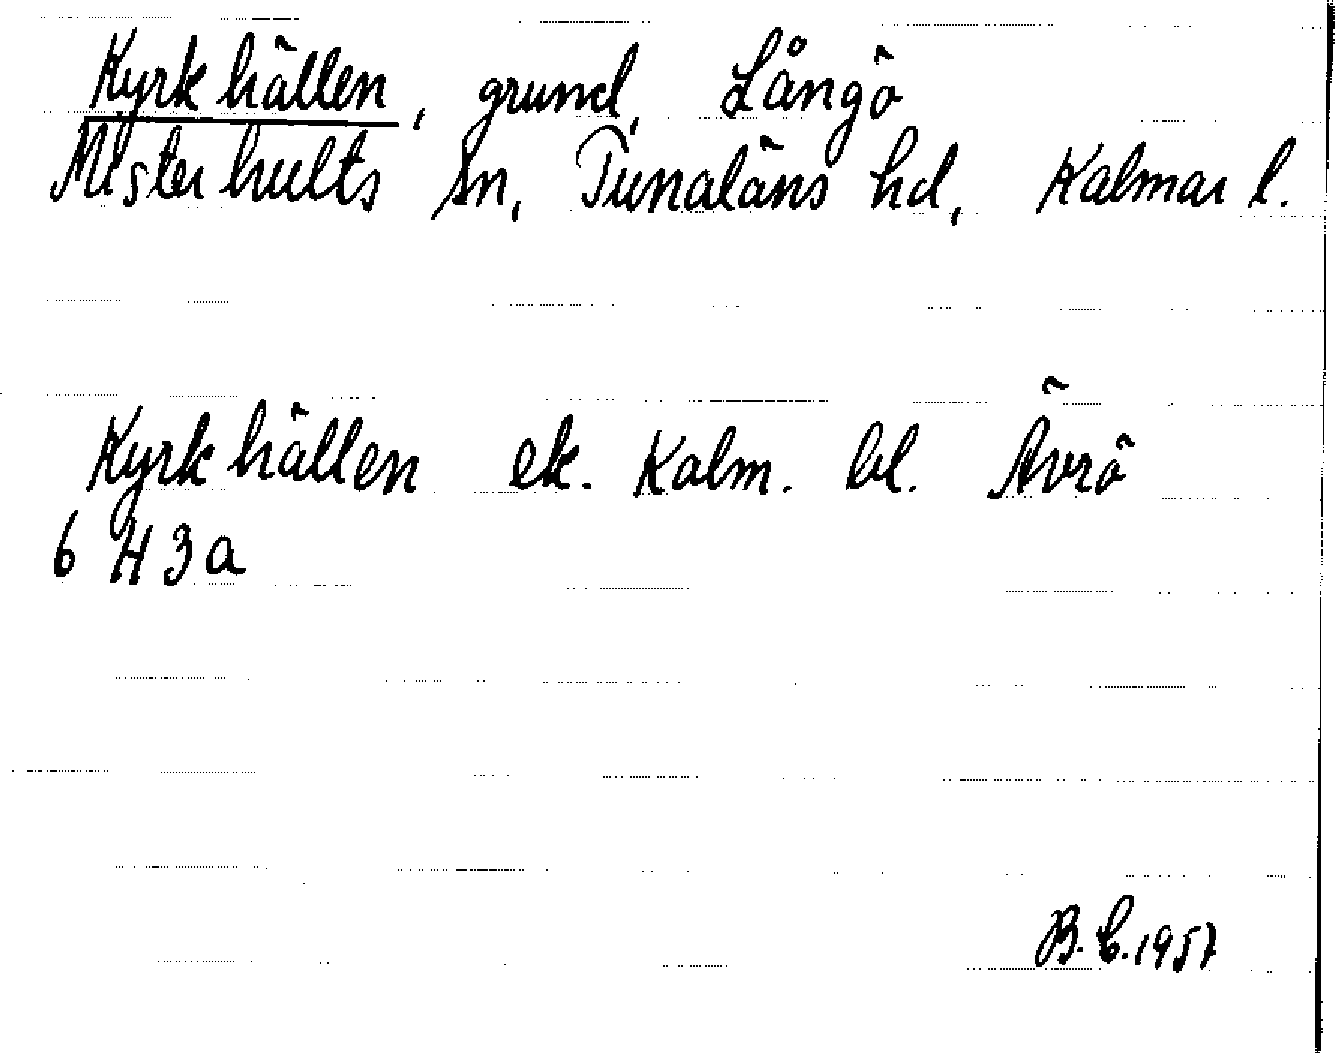 Kyrkhällen, grund, Långö
Misterhults sn, Tunaläns hd, Kalmar l.
Kyrkhällen ek. Kalm. bl. Ävrö
6 H 3 a
B.C. 1957